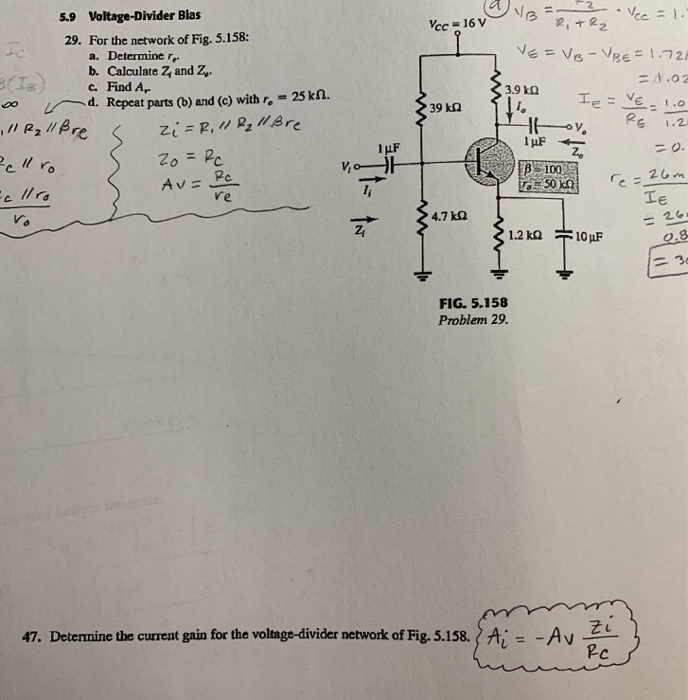 5.9 Voltage-Divider Bias
29. For the network of Fig. 5.158:
a. Determine rₑ.
b. Calculate Zᵢ and Zₒ.
c. Find Aᵥ.
d. Repeat parts (b) and (c) with rₒ = 25 kΩ.
Zi = R₁ // R₂ // βre
Zo = Rc
Av = Rc / re
Ic
β(IB)
∞
// R₂ // βre
Rc // ro
c // ro
ro
a VB = R₂ / R₁ + R₂ · Vcc = 1.
VE = VB − VBE = 1.721
= 1.02
IE = VE / RE = 1.0 / 1.2
= 0.
re = 26m / IE
= 26 / 0.8
= 3
V_CC = 16 V
3.9 kΩ
39 kΩ
Iₒ
Vₒ
1 μF
Zₒ
1 μF
Vᵢ
Iᵢ
β = 100
rₒ = 50 kΩ
4.7 kΩ
Zᵢ
1.2 kΩ
10 μF
FIG. 5.158
Problem 29.
47. Determine the current gain for the voltage-divider network of Fig. 5.158.
Ai = −Av Zi / Rc